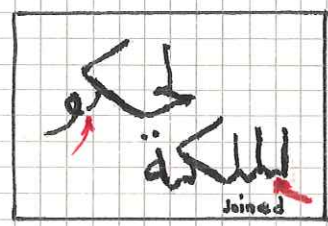 لحكو
للملكة
Joined